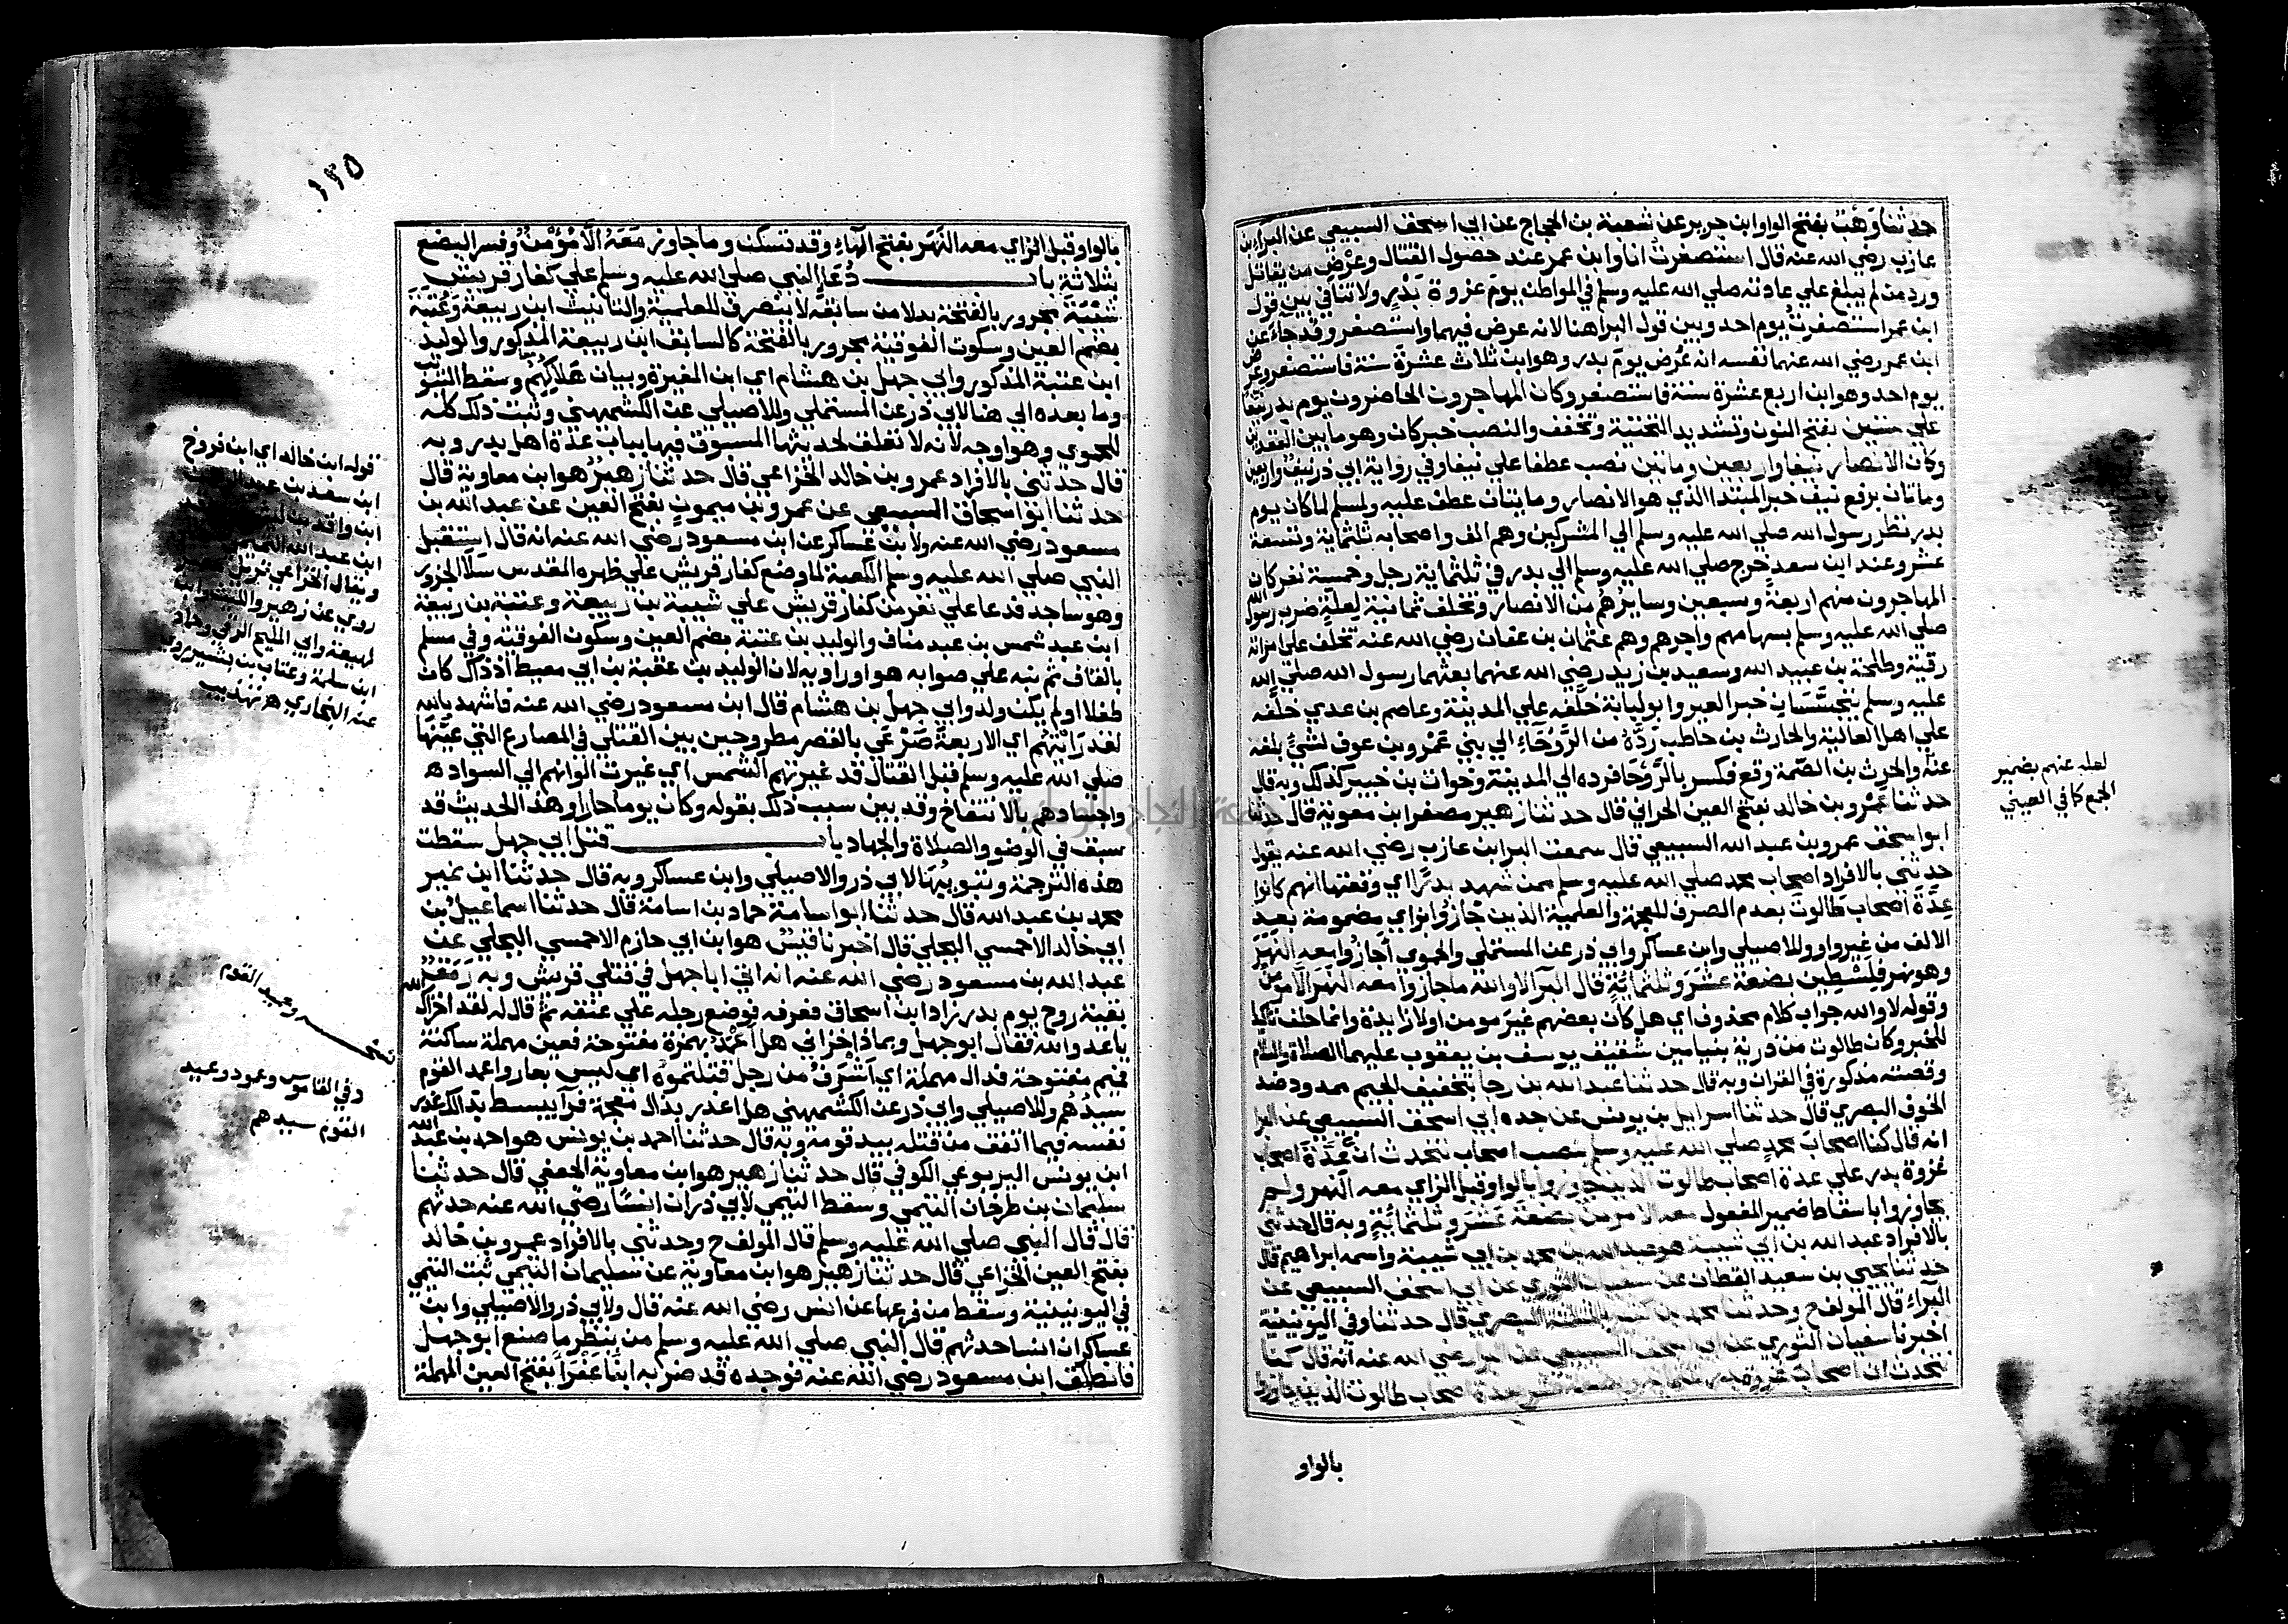 حدثنا وَهْب بفتح الواو ابن جرير عن شعبة بن الحجاج عن ابي اسحق السبيعي عن البراء بن
عازب رضي الله عنه قال استصغرت انا وابن عمر عند حصول القتال وعرض من يقاتل
ورد من لم يبلغ علي عادته صلي الله عليه وسلم في المواطن يوم غزوة بَدْرٍ ولا تنافي بين قول
ابن عمر استصغرت يوم احد وبين قول البرا هنا لانه عرض فيهما واستصغر وقد جاء عن
ابن عمر رضي الله عنهما نفسه انه عُرض يوم بدر وهو ابن ثلاث عشرة سنة فاستصغر وعرض
يوم احد وهو ابن اربع عشرة سنة فاستصغر وكان المهاجرون الحاضرون يوم بدر نيفا
علي ستين بفتح النون وتشديد التحتية وتخفف والنصب خبر كان وهو ما بين العقدين
وكان الانصار نيفا واربعين وماتين نصب عطفا علي نيفا وفي رواية ابي ذر نيفٌ واربعون
وماتان برفع نيف خبر المبتدا الذي هو الانصار وماتان عطف عليه ولمسلم لما كان يوم
بدر نظر رسول الله صلي الله عليه وسلم الي المشركين وهم الف واصحابه ثلثماية وتسعة
عشر وعند ابن سعد خرج صلي الله عليه وسلم الي بدر في ثلثماية رجل وخمسة نفر كان
المهاجرون منهم اربعة وسبعين وسايرهُم من الانصار وتخلف ثمانية لعلةٍ ضرب رسول الله
صلي الله عليه وسلم بسهامهم واجرهم وهم عثمان بن عفان رضي الله عنه تخلف علي امراته
رقية وطلحة بن عبيد الله وسعيد بن زيد رضي الله عنهما بعثهما رسول الله صلي الله
عليه وسلم يتجسسان خبر العير وابو لبابة خلَّفه علي المدينة وعاصم بن عدي خلفه
علي اهل العالية والحارث بن حاطب رَدَّهُ من الرَّوْحَاءِ الي بني عَمْرو بن عوف لشيءٍ بلغه
عنه والحرث بن الصمة وقع فكسر بالرَّوْحَا فرده الي المدينة وخوات بن جبير كذلك وبه قال
حدثنا عَمْرو بن خالد بفتح العين الحراني قال حدثنا زهير مصغرا ابن معوية قال حدثنا
ابو اسحق عمرو بن عبد الله السبيعي قال سمعت البرا بن عازب رضي الله عنه يقول
حدثني بالافراد اصحاب محمد صلي الله عليه وسلم ممن شهد بدرًا اي وقعتها انهم كانوا
عِدَّةَ اصحاب طالوت بعدم الصرف للعجمة والعلمية الذين جازُوا بزاي مضمومة بعد
الالف من غير واو وللاصيلي وابن عساكر وابي ذر عن المستملي والحموي أجازُوا معه النهَر
وهو نهر فلسطين بضعة عشر وثلثمائةٍ قال البرآ لا والله ما جازوا معه النهر الا مومن
وقوله لا والله جواب كلام محذوف اي هل كان بعضهم غير مومن او لا زايدة وانما حلف تاكيدا
للخبر وكان طالوت من ذرية بنيامين شقيق يوسف بن يعقوب عليهما الصلاة والسلام
وقصته مذكورة في القران وبه قال حدثنا عبد الله بن رجا بتخفيف الجيم ممدود ضد
الخوف البصري قال حدثنا اسرائيل بن يونس عن جده ابي اسحق السبيعي عن البرا
انه قال كنا اصحاب محمد صلي الله عليه وسلم بنصب اصحاب نتحدث ان عِدَّةَ اصحاب
غزوة بدر علي عدة اصحاب طالوت الذين جاوزوا بالواو قبل الزاي معه النهر ولم
يجاوزوا باسقاط ضمير المفعول معه الا مومن بضعة عَشَرَ وثلثمائةٍ وبه قال حدثني
بالافراد عبد الله بن ابي شيبة هو عبد الله بن محمد بن ابي شيبة واسمه ابراهيم قال
حدثنا يحيي بن سعيد القطان عن سفيان الثوري عن ابي اسحق السبيعي عن
البراء قال المولف ح وحدثنا محمد بن كثير البصري قال حدثنا وفي اليونينية
اخبرنا سفيان الثوري عن ابي اسحق السبيعي عن البرا رضي الله عنه انه قال كنا
نتحدث ان اصحاب غزوة بدر عدة اصحاب طالوت الذين جاوزوا
بالواو
لعله عنهم بضمير
الجمع كما في العيني
١٣٥
بالواو قبل الزاي معه النَّهَر بفتح الهاءِ وقد تسكن وما جاوز مَعَهُ الَّا مُؤمنٌ وفسر البضع
بثلاثة باب دُعَآءِ النبي صلي الله عليه وسلم علي كفار قريش
شَيْبَةَ مجرور بالفتحة بدلا من سابقه لا ينصرف للعلمية والتانيث ابن ربيعة وَعُتْبَةَ
بضم العين وسكون الفوقية مجرور بالفتحة كالسابق ابن ربيعة المذكور والوليد
ابن عتبة المذكور وابي جهل بن هشام اي ابن المغيرة وبيان هَلَاكِهِمْ وسقط التبويب
وما بعده الي هنا لابي ذر عن المستملي وللاصيلي عن الكشميهني وثبت ذلك كله
للحموي وهو اوجه لانه لا تعلق لحديثها المسوق فيها بباب عدة اهل بدر وبه
قال حدثني بالافراد عمرو بن خالد الخزاعي قال حدثنا زهيرٌ هو ابن معاوية قال
حدثنا ابو اسحاق السبيعي عن عمرو بن ميمون بفتح العين عن عبد الله بن
مسعود رضي الله عنه ولابن عساكر عن ابن مسعود رضي الله عنه انه قال استقبل
النبي صلي الله عليه وسلم الكعبة لما وضع كفار قريش علي ظهره المقدس سلا الجزور
وهو ساجد فدعا علي نفر من كفار قريش علي شيبة بن ربيعة وعتبة بن ربيعة
ابن عبد شمس بن عبد مناف والوليد بن عتبة بضم العين وسكون الفوقية وفي مسلم
بالقاف ثم نبه علي صوابه هو او راويه لان الوليد بن عقبة بن ابي معيط اذ ذاك كان
طفلا او لم يكن ولد وابي جهل بن هشام قال ابن مسعود رضي الله عنه فاشهد بالله
لقد رَأَيْتُهُم اي الاربعة صَرْعَي بالقصر مطروحين بين القتلي في المصارع التي عَيَّنَهَا
صلي الله عليه وسلم قبل القتال قد غيرتهم الشمس اي غيرت الوانهم الي السواد
واجسادهم بالانتفاخ وقد بين سبب ذلك بقوله وكان يوما حارا وهذا الحديث قد
سبق في الوضو والصلاة والجهاد باب قتل ابي جهل سقطت
هذه الترجمة وتبويبُها لابي ذر والاصيلي وابن عساكر وبه قال حدثنا ابن نمير
محمد بن عبد الله قال حدثنا ابو اسامة حماد بن اسامة قال حدثنا اسماعيلُ بن
ابي خالد الاحمسي البجلي قال اخبرنا قيسٌ هو ابن ابي حازم الاحمسي البجلي عن
عبد الله بن مسعود رضي الله عنه انه اتي ابا جهل في قتلي قريش وبه رَمَقٌ
بقية روح يوم بدر زاد ابن اسحاق فعرفه فوضع رجله علي عنقه ثم قال له لقد اخزاك الله
يا عدو الله فقال ابو جهل وبماذا اخزاني هل أعْمَدُ بهمزة مفتوحة فعين مهملة ساكنة
فميم مفتوحة فدال مهملة اي أشْرَفُ من رجل قتلتموه اي ليس بعار واعمد القوم
سيدُهُم وللاصيلي وابي ذر عن الكشميهني هل اعذر بذال معجمة فرآ يبسط بذلك عذر
نفسه فيما اتفق من قتله بيد قومه وبه قال حدثنا احمد بن يونس هو احمد بن عبد الله
ابن يونس اليربوعي الكوفي قال حدثنا زهير هو ابن معاوية الجعفي قال حدثنا
سليمان بن طرخان التيمي وسقط التيمي لابي ذر ان انسًا رضي الله عنه حدثهم
قال قال النبي صلي الله عليه وسلم قال المولف ح وحدثني بالافراد عمرو بن خالد
بفتح العين الخزاعي قال حدثنا زهير هو ابن معاوية عن سليمان التيمي ثبت التيمي
في اليونينية وسقط من فرعها عن انس رضي الله عنه قال ولابي ذر والاصيلي وابن
عساكر ان انسا حدثهم قال النبي صلي الله عليه وسلم من ينظر ما صنع ابو جهل
فانطلق ابن مسعود رضي الله عنه فوجده قد ضربه ابنا عَفْرَا بفتح العين المهملة
قوله ابن خالد اي ابن فروخ
ابن سعيد بن عبد الرحمن
ابن واقد بن
ابن عبد الله التميمي
ويقال الخزاعي نزيل
روي عن زهير والليث وابن
لهيعة وابي المليح الرقي وحماد
ابن سلمة وعتاب بن بشير روي
عنه البخاري تهذيب
وعميد القوم
وفي القاموس وعمود وعميد
القوم سيدهم